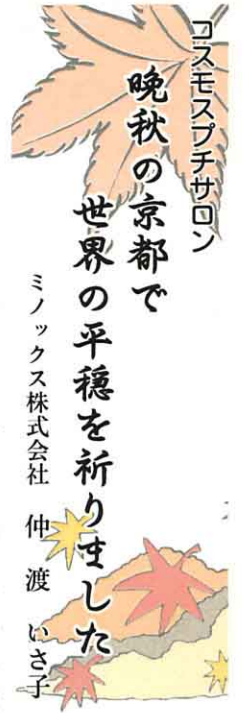 コスモスプチサロン
晩秋の京都で
世界の平穏を祈りました
ミノックス株式会社 仲渡 いさ子